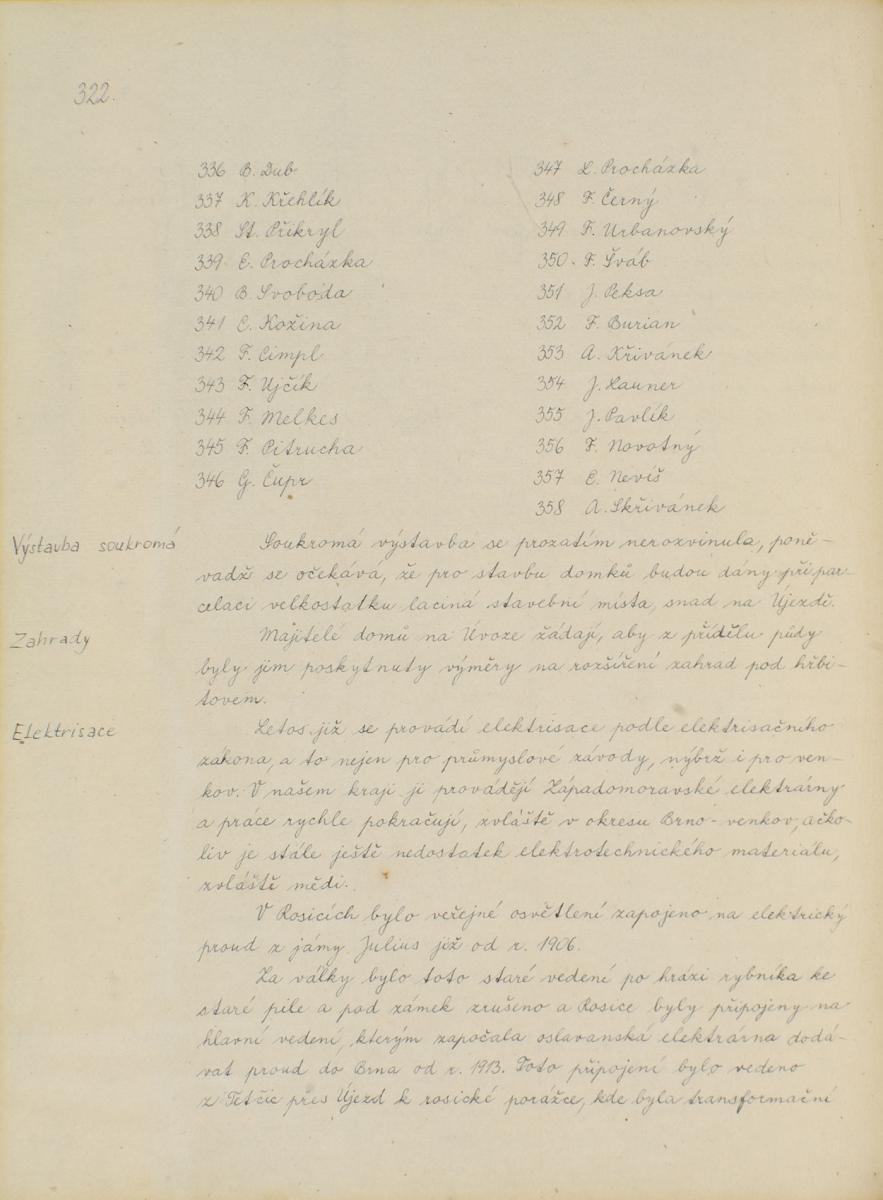 322.
336 B. Dub
337 K. Křehlík
338 St. Přikryl
339 C. Procházka
340 B. Svoboda
341 C. Kožina
342 F. Cimpl
343 F. Ujčík
344 F. Melkes
345 F. Pitrucha
346 G. Čupr
347 L. Procházka
348 F. Černý
349 F. Urbanovský
350. F. Šváb
351 J. Peksa
352 F. Burian
353 A. Křivánek
354 J. Launer
355 J. Pavlík
356 F. Novotný
357 C. Nevíš
358 A. Skřivánek
Výstavba soukromá
Soukromá výstavba se prozatím nerozvinula, poně-
vadž se očekává, že pro stavbu domků budou dány při par-
celaci velkostatku laciná stavební místa, snad na Újezdě.
Zahrady
Majitelé domů na Úvoze žádají, aby z přídělu půdy
byly jim poskytnuty výměry na rozšíření zahrad pod hřbi-
tovem.
Elektrisace
Letos již se provádí elektrisace podle elektrisačního
zákona, a to nejen pro průmyslové závody, nýbrž i pro ven-
kov. V našem kraji ji provádějí Západomoravské elektrárny
a práce rychle pokračují, zvláště v okresu Brno-venkov, ačko-
liv je stále ještě nedostatek elektrotechnického materiálu,
zvláště mědi.
V Rosicích bylo veřejné osvětlení zapojeno na elektrický
proud z jámy Julius již od r. 1906.
Za války bylo toto staré vedení po hrázi rybníka ke
staré pile a pod zámek zrušeno a Rosice byly připojeny na
hlavní vedení, kterým započala oslavanská elektrárna dodá-
vat proud do Brna od r. 1913. Toto připojení bylo vedeno
z Tetčic přes Újezd k rosické porážce, kde byla transformační